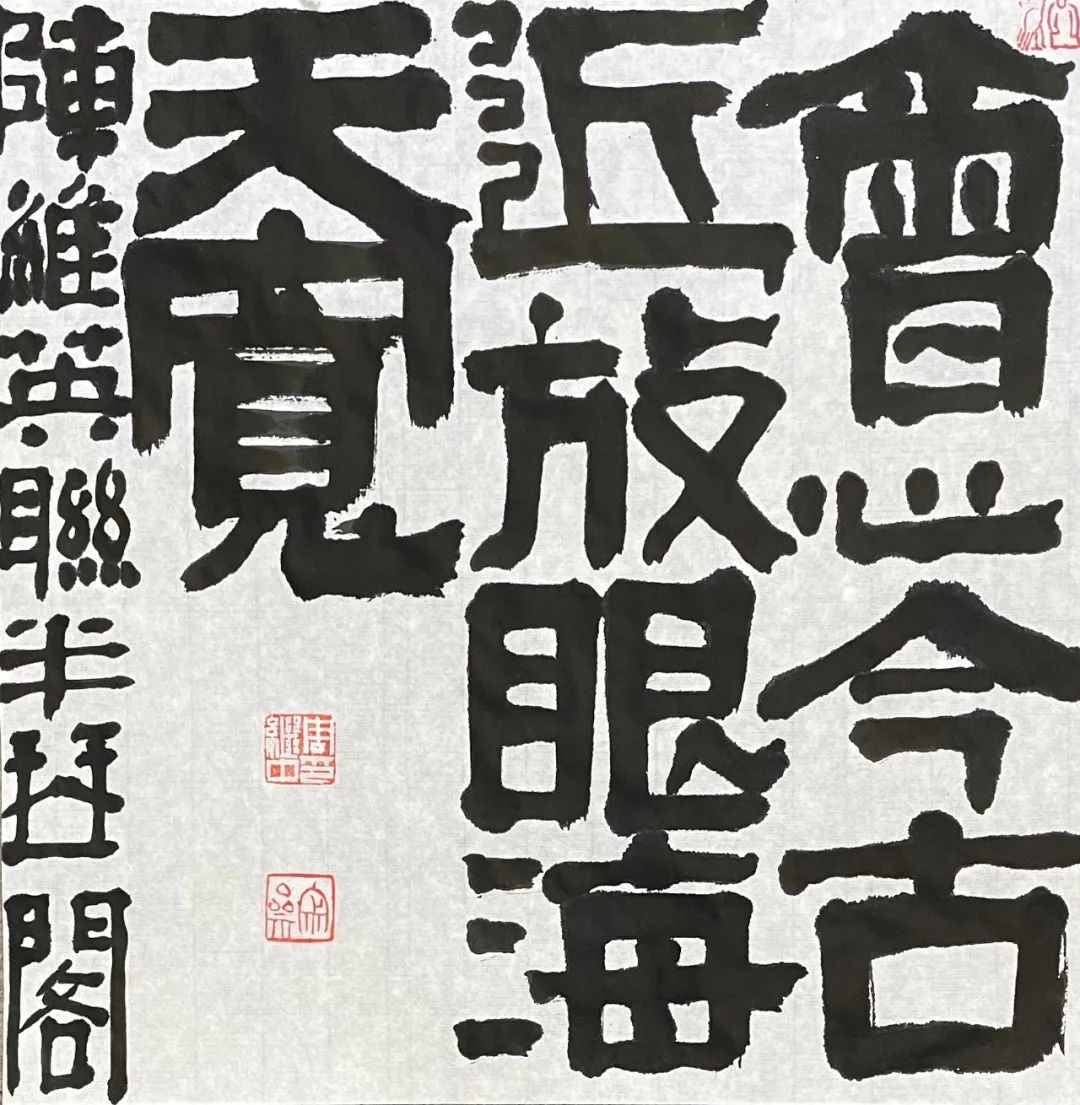 會心今古
近放眼海
天寬
陳維英聯半珡閣